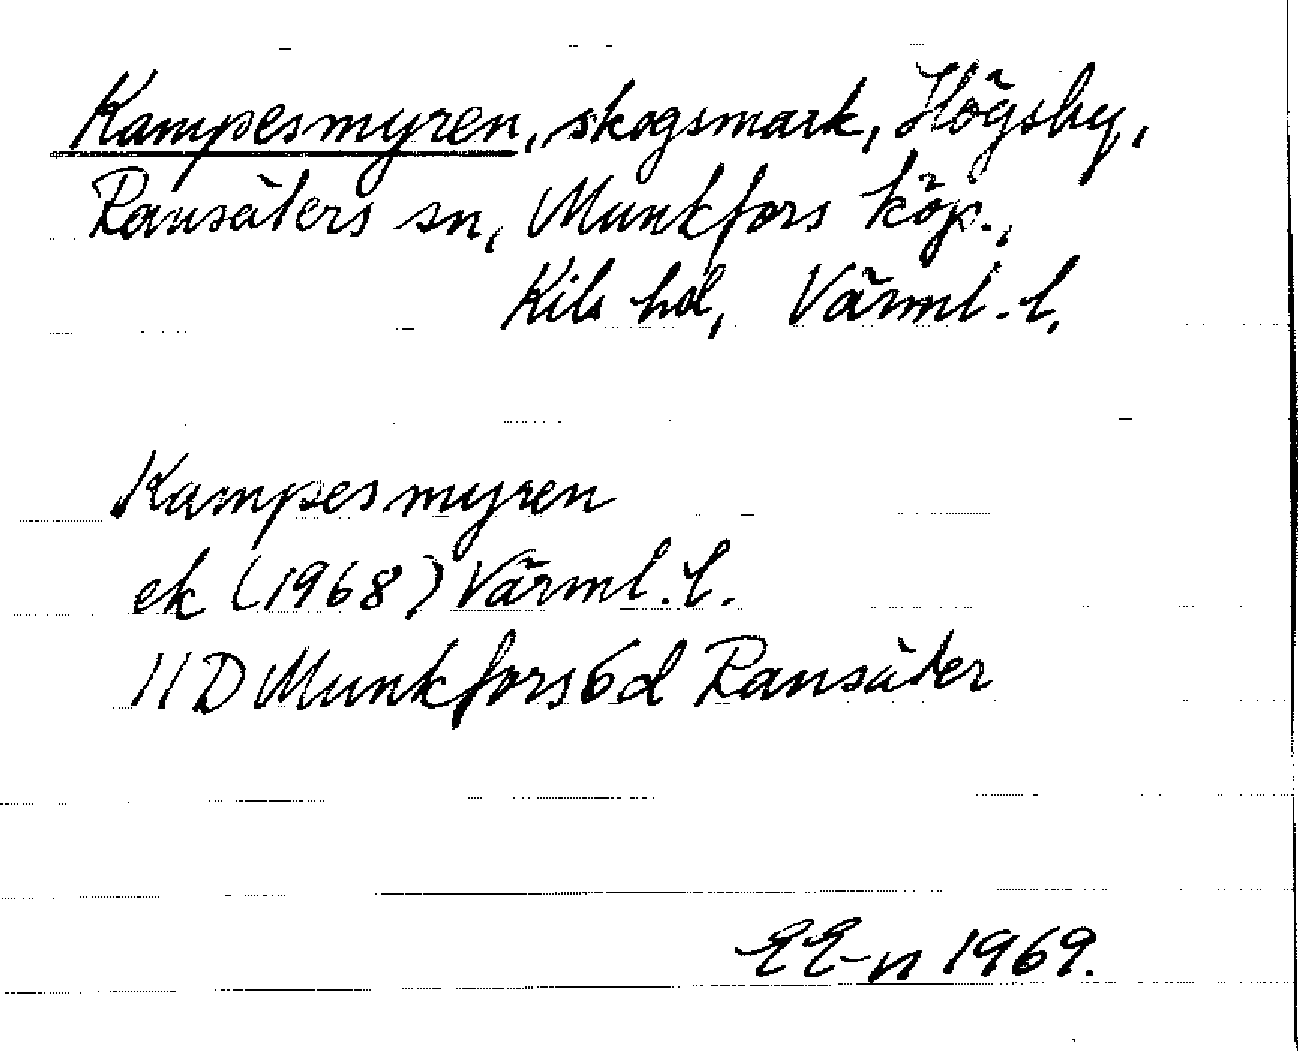 Kampesmyren, skogsmark, Högsby,
Ransäters sn, Munkfors köp.,
Kils hd, Värml. l.
Kampesmyren
ek (1968) Värml. l.
11D Munkfors 6d Ransäter
EE-n 1969.